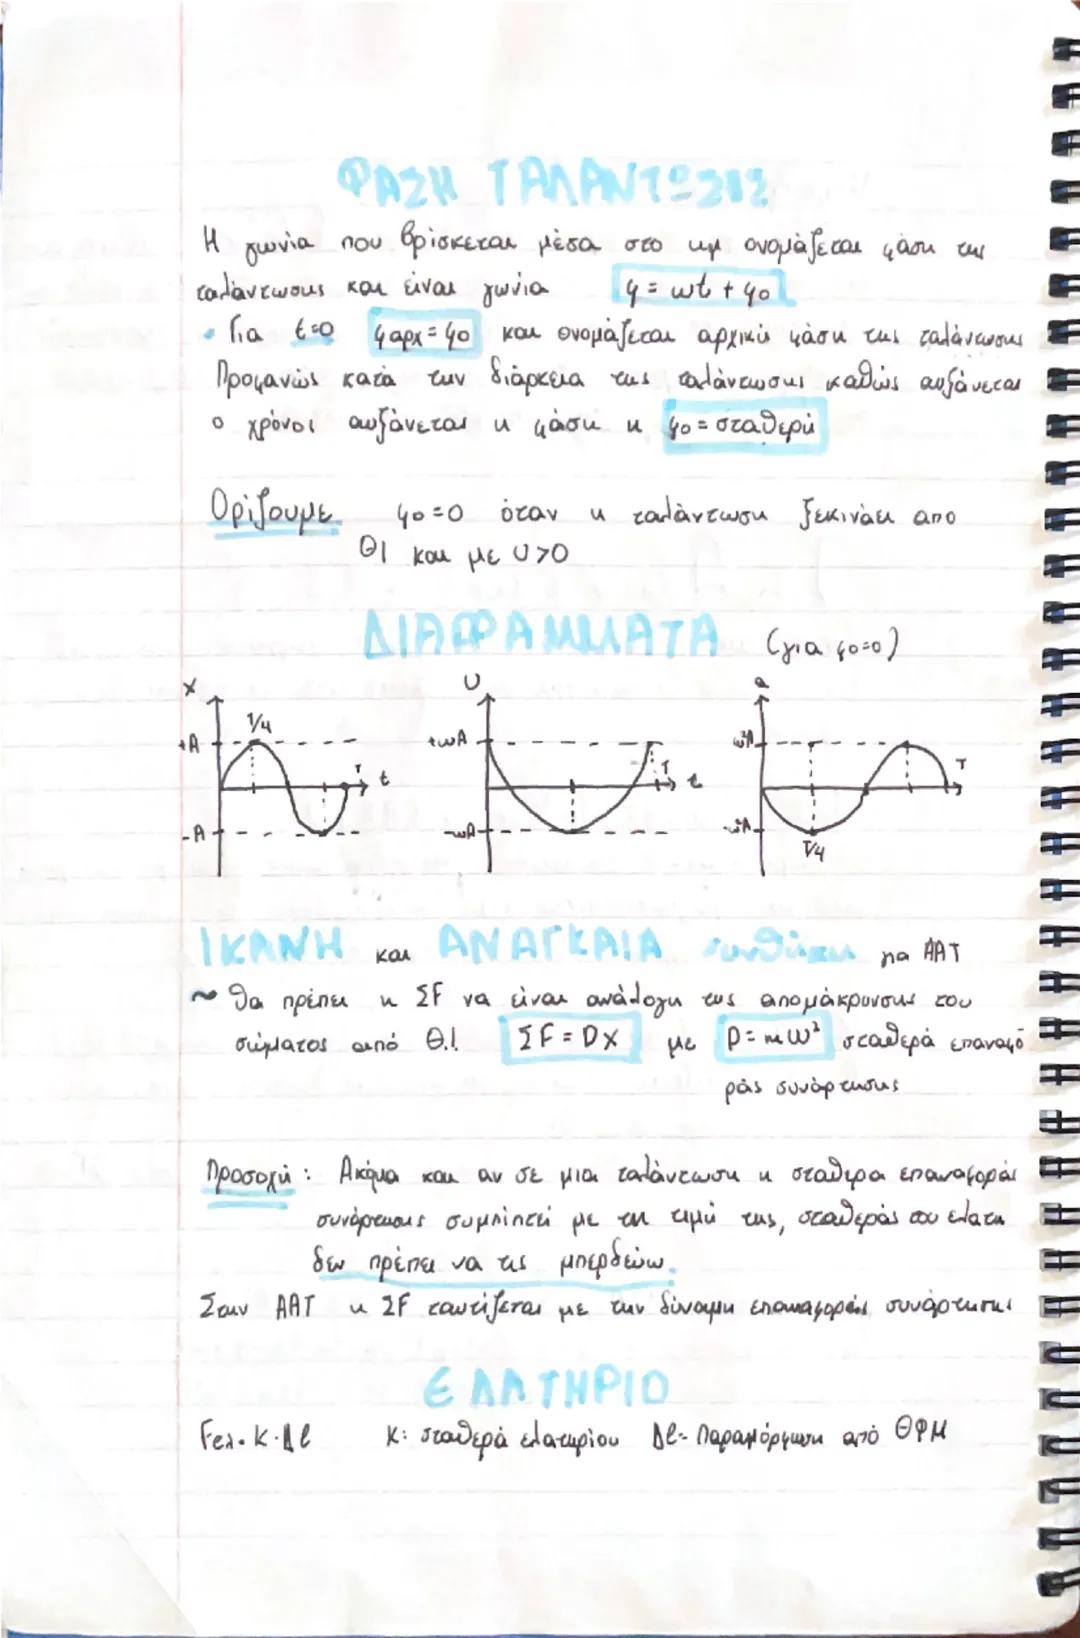 ΦΑΣΗ ΤΑΛΑΝΤΩΣΗΣ
Η γωνία που βρίσκεται μέσα στο ημ ονομάζεται φάση της
ταλάντωσης και είναι γωνία φ = ωt + φ0
• Για t=0 φαρχ = φ0 και ονομάζεται αρχική φάση της ταλάντωσης
Προφανώς κατά την διάρκεια της ταλάντωσης καθώς αυξάνεται
ο χρόνος αυξάνεται η φάση η φ0 = σταθερή
Ορίζουμε φ0=0 όταν η ταλάντωση ξεκινάει από
ΘΙ και με U>0
ΔΙΑΓΡΑΜΜΑΤΑ (για φ0=0)
x U a
+A T/4 T t -A
+ωA T t -ωA
ω²A T -ω²A T/4
ΙΚΑΝΗ και ΑΝΑΓΚΑΙΑ συνθήκη για ΑΑΤ
~ Θα πρέπει η ΣF να είναι ανάλογη της απομάκρυνσης του
σώματος από Θ.Ι. ΣF = DX με D = mω² σταθερά επαναφο
ράς συνάρτησης
Προσοχή : Ακόμα και αν σε μια ταλάντωση η σταθερα επαναφοράς
συνάρτησης συμπίπτει με τη τιμή της, σταθεράς του ελατη
δεν πρέπει να τις μπερδεύω.
Στην ΑΑΤ η ΣF ταυτίζεται με την δύναμη επαναφοράς συνάρτησης
ΕΛΑΤΗΡΙΟ
Fελ = K·Δl K: σταθερά ελατηρίου Δl = Παραμόρφωση από ΘΦΜ